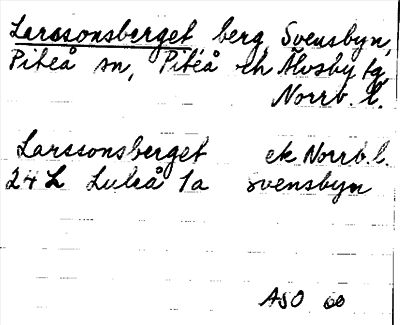 Larssonsberget, berg, Svensbyn,
Piteå sn, Piteå ch Älvsby tg,
Norrb. l.
Larssonsberget ek Norrb. l.
24L Luleå 1a Svensbyn
ASO 60